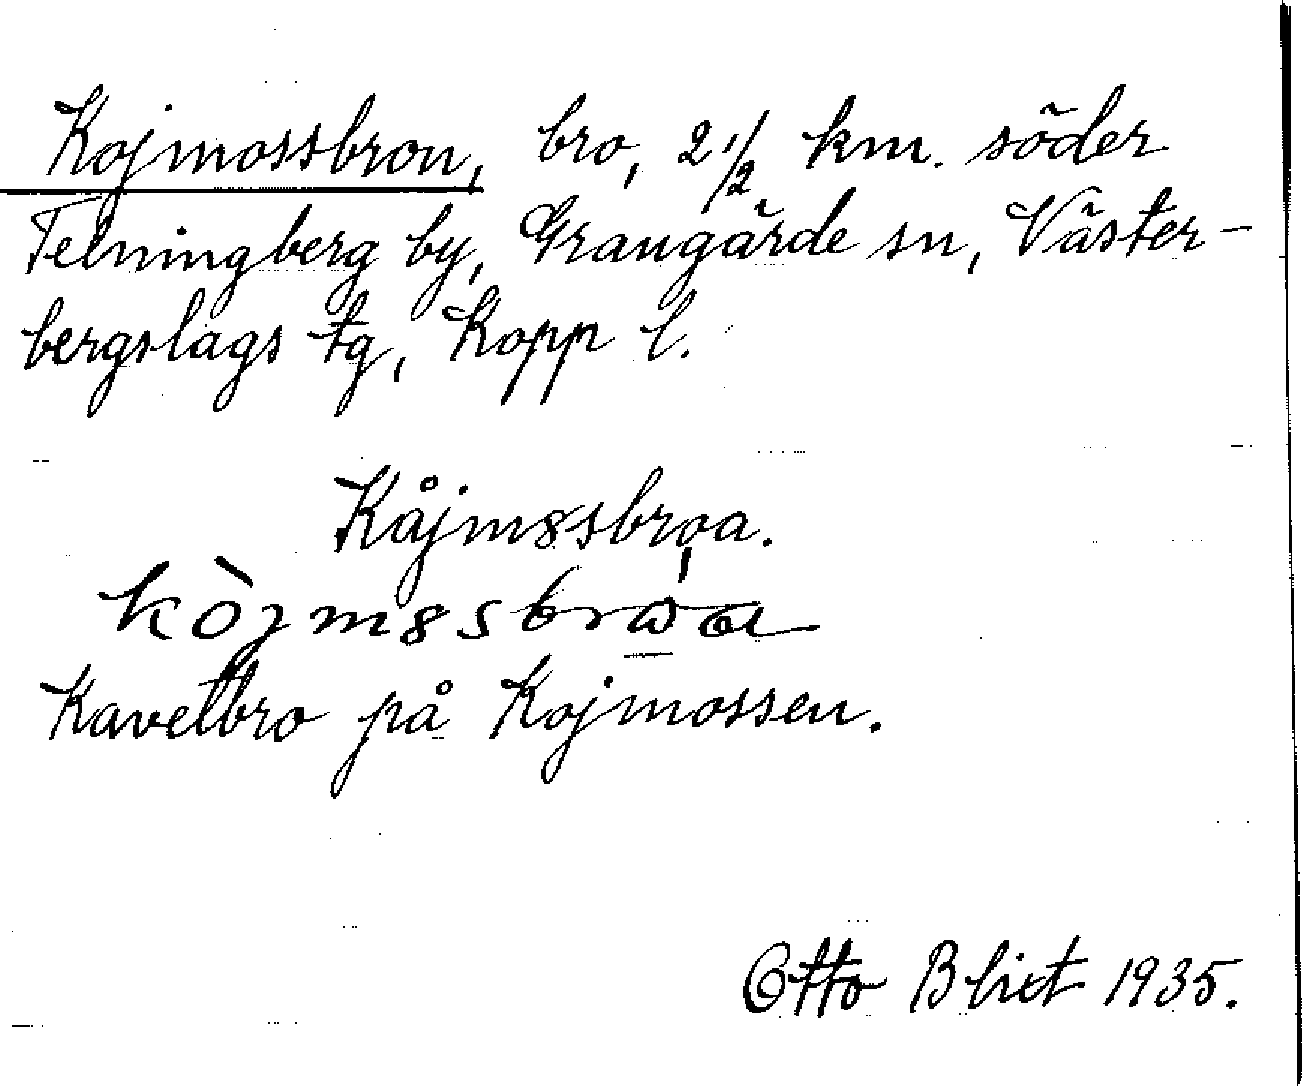 Kojmossbron, bro, 2 1/2 km. söder
Telningberg by, Grangärde sn, Väster-
bergslags tg, Kopp l.
Kåjmssbroa.
Kavelbro på Kojmossen.
Otto Blixt 1935.